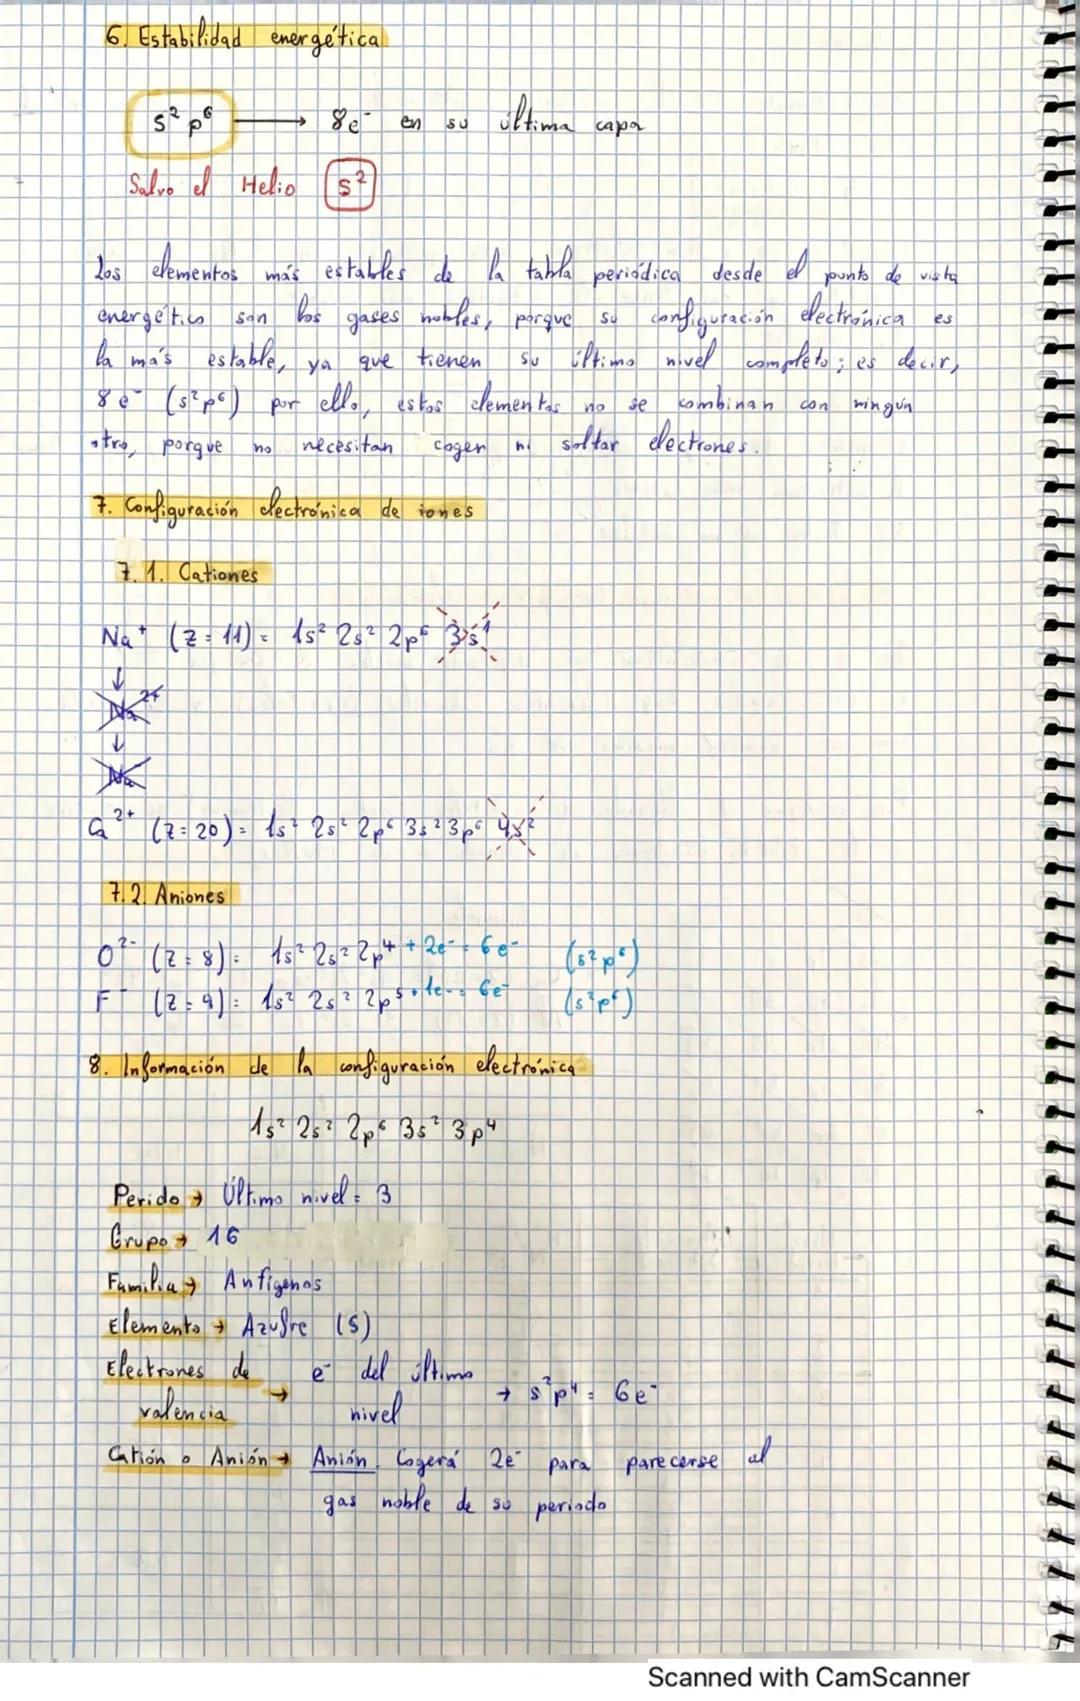 6. Estabilidad energética
s² p⁶ → 8e⁻ en su última capa
Salvo el Helio s²
Los elementos más estables de la tabla periódica desde el punto de vista
energético son los gases nobles, porque su configuración electrónica es
la más estable, ya que tienen su último nivel completo; es decir,
8 e⁻ (s²p⁶) por ello, estos elementos no se combinan con ningún
otro, porque no necesitan coger ni soltar electrones.
7. Configuración electrónica de iones
7.1. Cationes
Na⁺ (Z = 11) = 1s² 2s² 2p⁶ 3s¹
↓
Na²⁺
↓
Na⁻
Ca²⁺ (Z = 20) = 1s² 2s² 2p⁶ 3s² 3p⁶ 4s²
7.2. Aniones
O²⁻ (Z = 8) = 1s² 2s² 2p⁴ + 2e⁻ = 6e⁻ (s²p⁶)
F⁻ (Z = 9) = 1s² 2s² 2p⁵ + 1e⁻ = 6e⁻ (s²p⁶)
8. Información de la configuración electrónica
1s² 2s² 2p⁶ 3s² 3p⁴
Perido → Último nivel = 3
Grupo → 16
Familia → Anfígenos
Elemento → Azufre (S)
Electrones de valencia → e⁻ del último nivel → s²p⁴ = 6e⁻
Catión o Anión → Anión. Cogerá 2e⁻ para parecerse al
gas noble de su periodo
Scanned with CamScanner